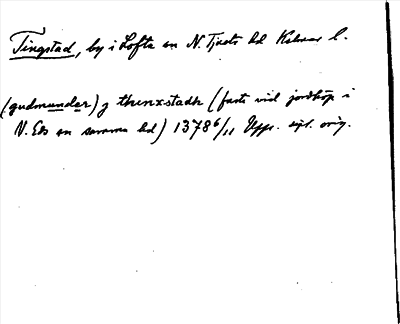 Tingstad, by i Lofta sn N. Tjusts hd Kalmar l.
(gudmundar) j thinxstadh (fasti vid jordköp i
N. Eds sn samma hd) 1378 6/11 Upps. dipl. orig.